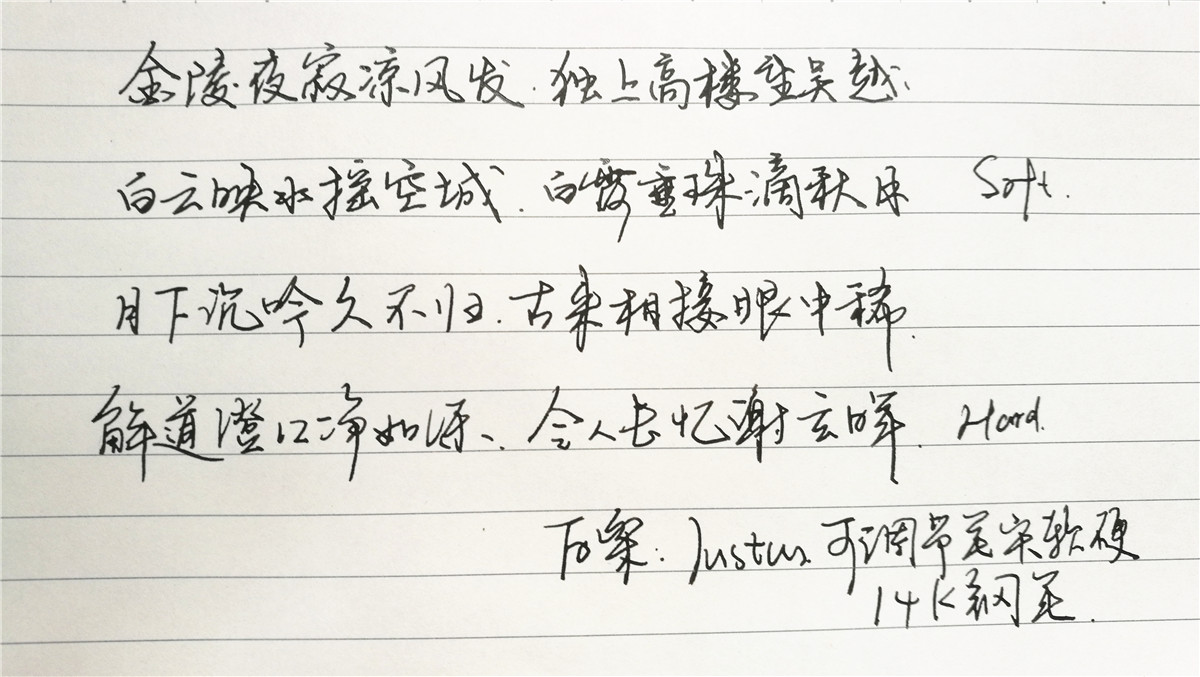 金陵夜寂凉风发.独上高楼望吴越.
白云映水摇空城.白露垂珠滴秋月 Soft.
月下沉吟久不归.古来相接眼中稀.
解道澄江净如练、令人长忆谢玄晖. Hard.
百乐:Justus 可调节笔尖软硬
14K钢笔.